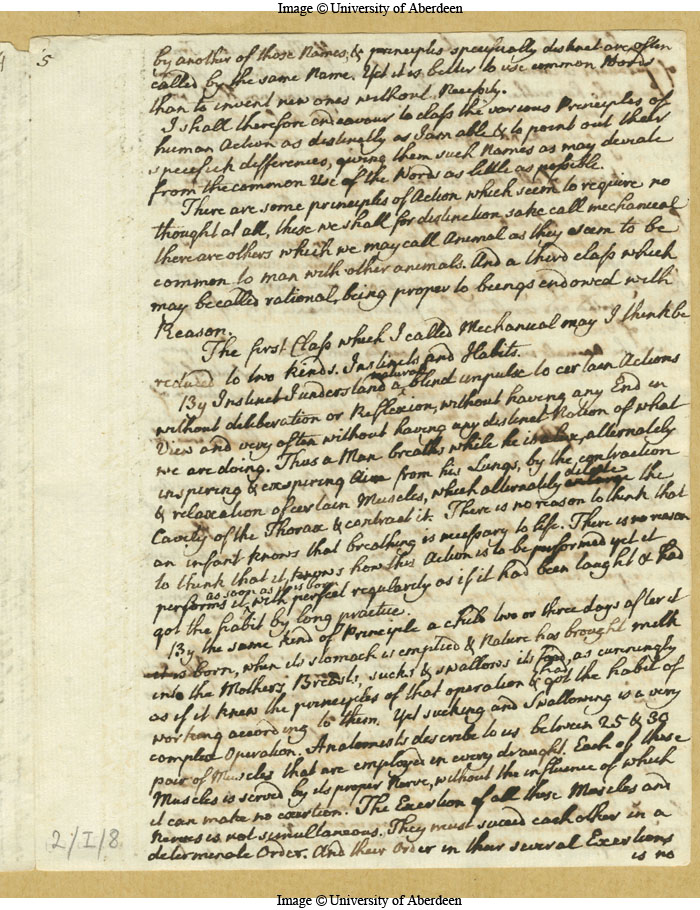 Image © University of Aberdeen
5
by another of those Names, & principles specifically distinct are often
called by the same Name. Yet it is better to use common Words
than to invent new ones without Necessity.
I shall therefore endeavour to class the various Principles of
human Action as distinctly as I am able & to point out their
specifick differences, giving them such Names as may deviate
from the common Use of the Words as little as possible.
There are some principles of Action which seem to require no
thought at all, these we shall for distinction sake call mechanical
there are others which we may call Animal as they seem to be
common to man with other animals. And a third class which
may be called rational, being proper to beings endowed with
Reason.
The first Class which I called Mechanical may I think be
reduced to two kinds. Instincts and Habits.
By Instinct I understand a natural blind impulse to certain Actions
without deliberation or Reflexion, without having any End in
View and very often without having any distinct Notion of what
we are doing. Thus a Man breaths while he is alive, alternately
inspiring & exspiring Air from his Lungs, by the contraction
& relaxation of certain Muscles, which alternately dilate the
Cavity of the Thorax & contract it. There is no reason to think that
an infant knows that breathing is necessary to life. There is no reason
to think that it knows how this Action is to be performed yet it
performs it as soon as it is born with perfect regularity as if it had been taught & had
got the habit by long practice.
By the same kind of Principle a child two or three days after it
is born, when its stomach is emptied & Nature has brought milk
into the Mothers Breasts, sucks & swallows its food, as cunningly
as if it knew the principles of that operation & had got the habit of
working according to them. Yet sucking and Swallowing is a very
complex Operation. Anatomists describe to us between 25 & 30
pair of Muscles that are employed in every draught. Each of these
Muscles is served by its proper Nerve, without the influence of which
it can make no exertion. The Exertion of all those Muscles and
Nerves is not simultaneous. They must succeed each other in a
determinate Order. And their Order in their several Exertions
is no
2/I/8
Image © University of Aberdeen